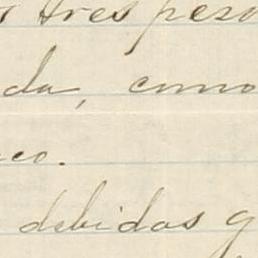 tres peso
da, como
co.
debidas g